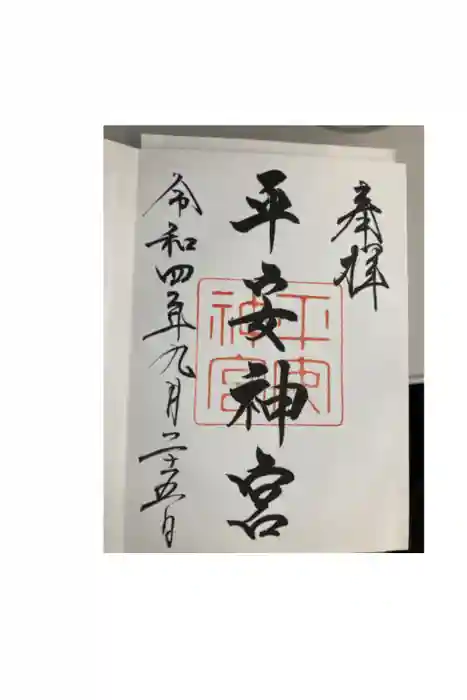 奉拝
平安神宮
平安神宮
令和四年九月二十五日